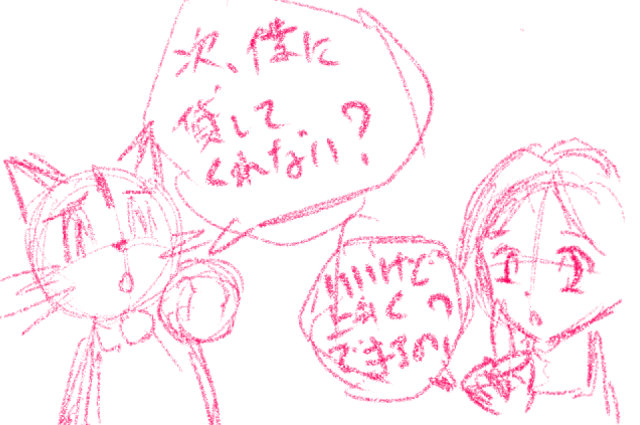 次、僕に
貸して
くれない？
いいけど
上手く
できるの？